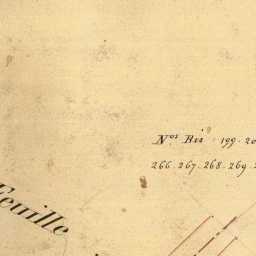 Nos Bis 199. 20
266. 267. 268. 269. 2
Feuille